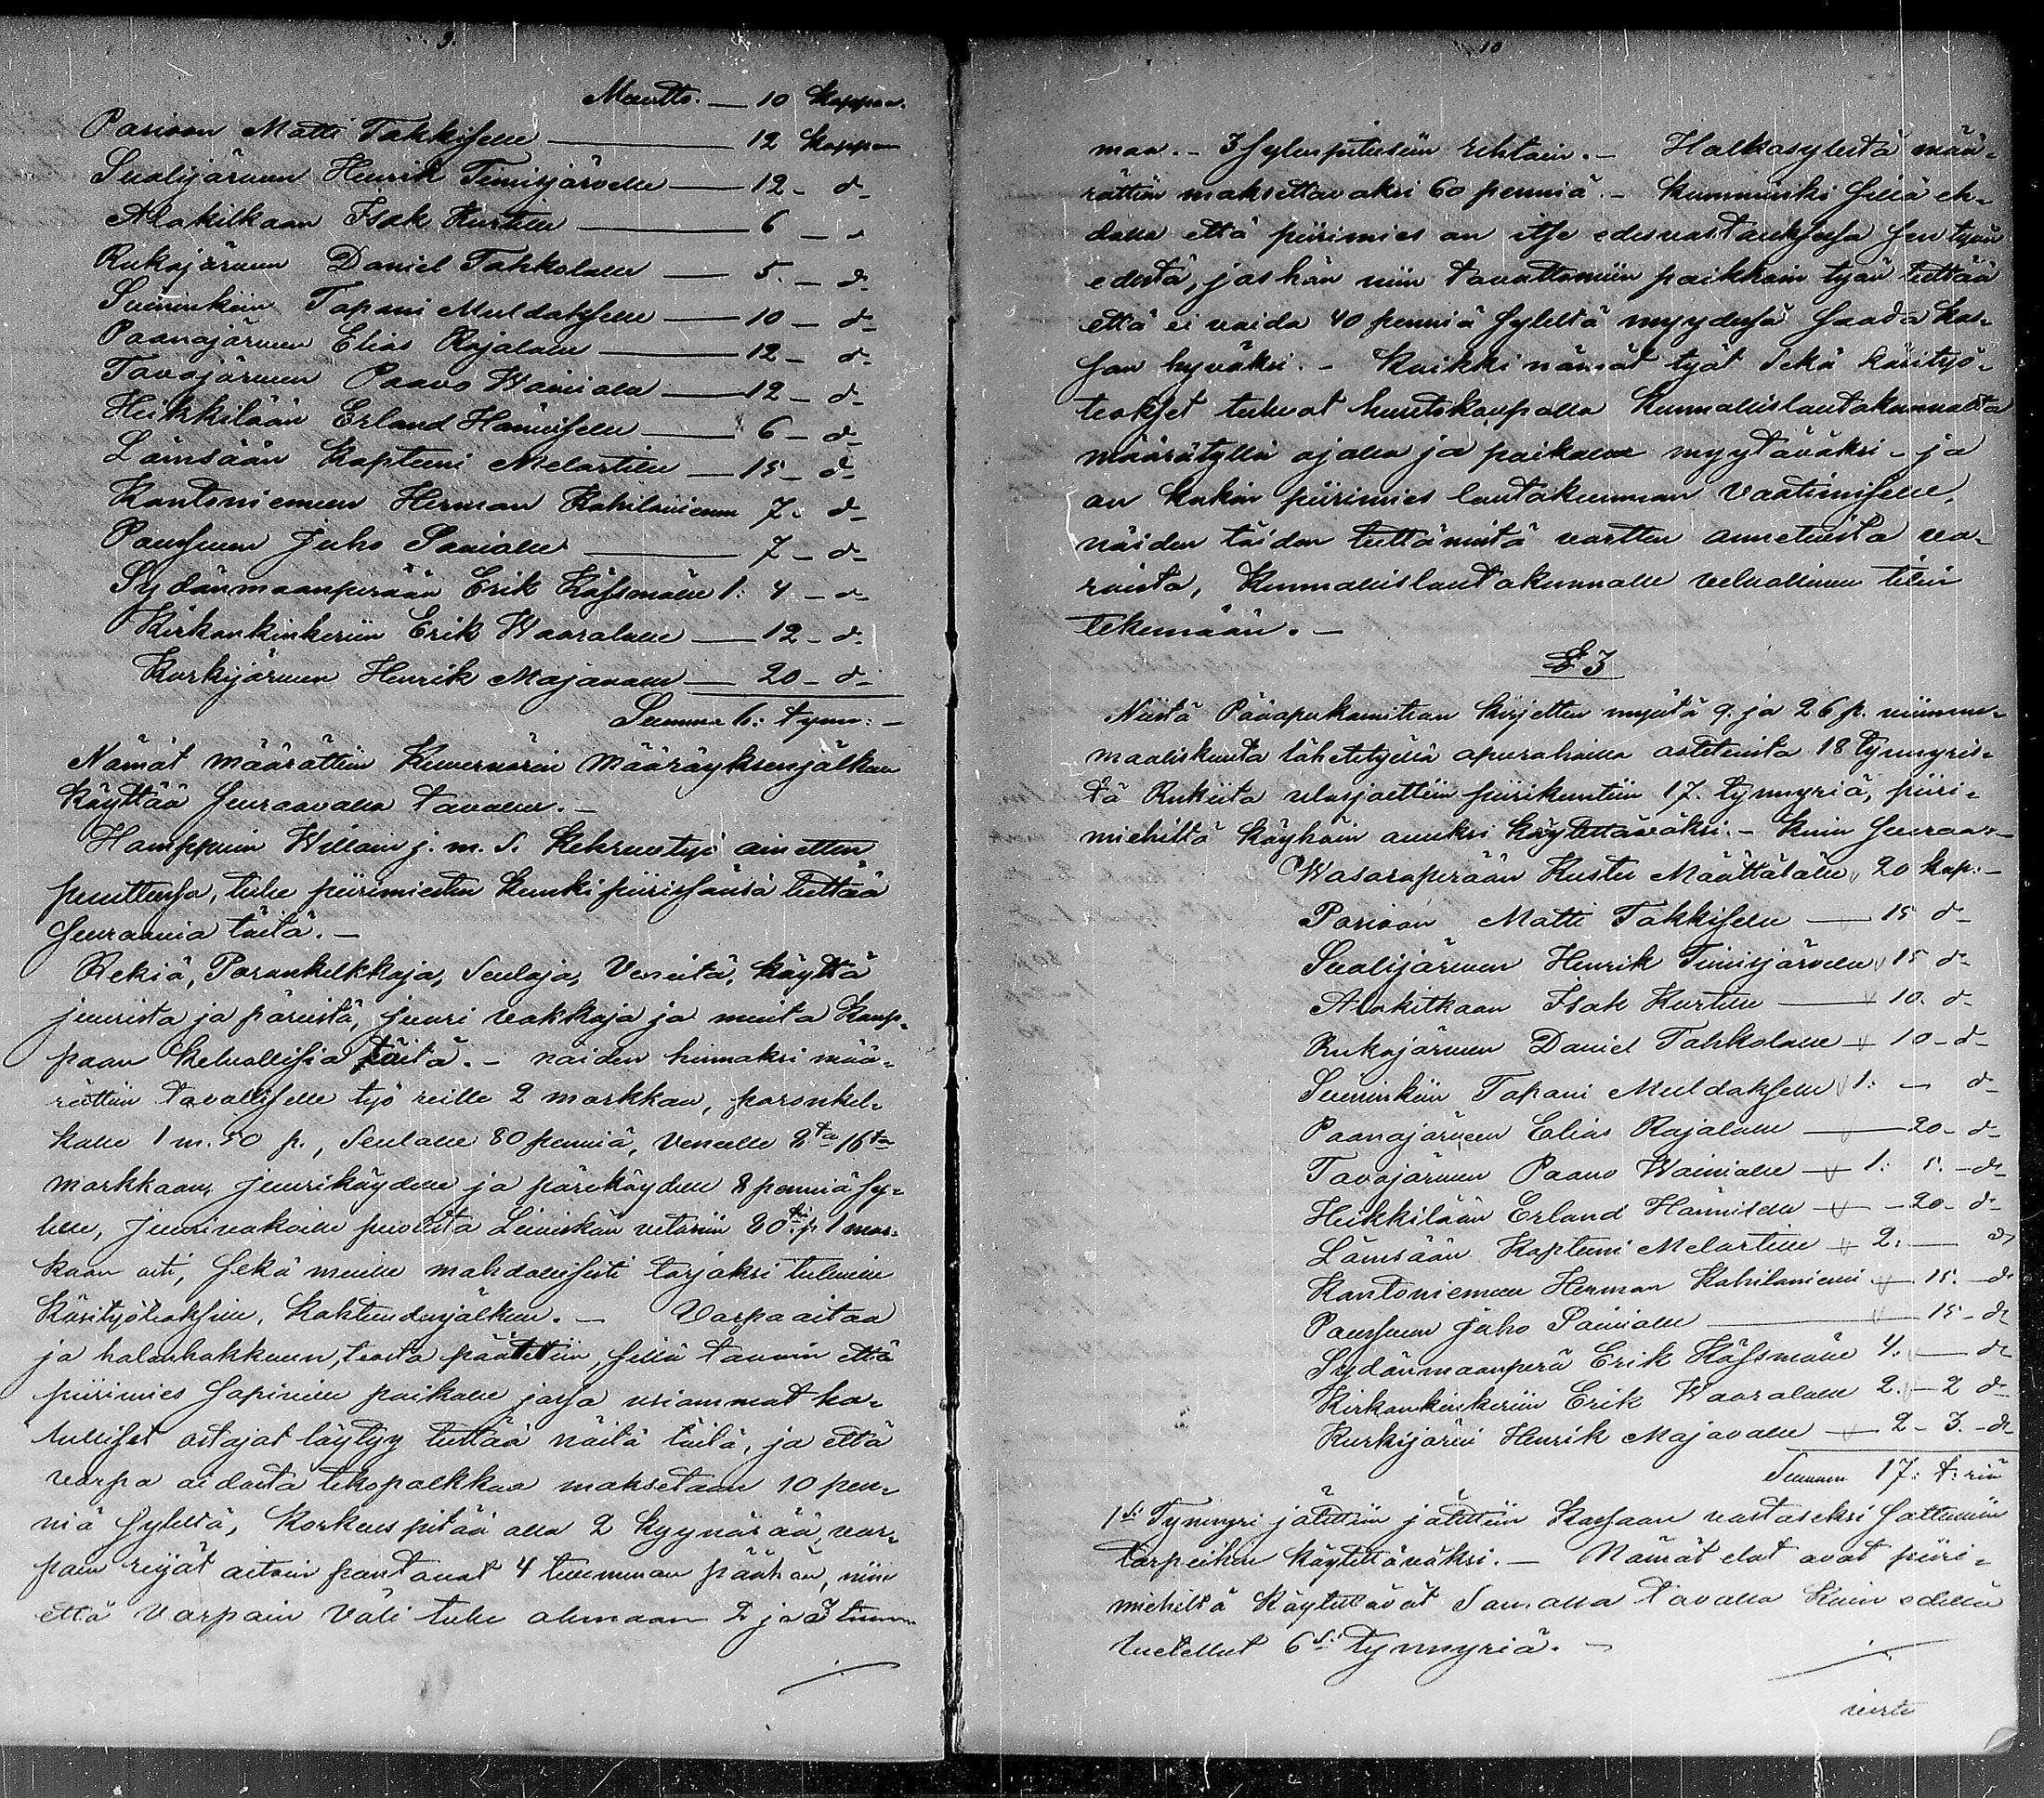 9.
Muutto. — 10 kappaa.
Parivaan Matti Takkiselle — 12 kappaa
Suolijärveen Henrik Timisjärvelle — 12 - d-
Alakitkaan Isak Kurtille — 6 — d
Rukajärveen Daniel Tahkolalle — 5. — d-
Suininkiin Tapani Muldakselle — 10 — d-
Paanajärveen Elias Rajalalle — 12 - d-
Tavajärveen Paavo Wainiolle — 12 - d-
Heikkilään Erland Hänniselle — 6 - d-
Lämsään Kapteeni Melartille — 15 - d-
Kantoniemeen Herman Kahilaniemi 7. d-
Pousuun Juho Painiolle — 7 - d-
Sydänmaanperään Erik Kässmälle 1: 4 - d-
Kirkonkinkeriin Erik Waaralalle — 12 - d-
Kurkijärveen Henrik Majavalle — 20 - d-
Summa 6: tynn: -
Nämät määrättiin Kuvernörin määräyksenjälkeen
käyttää seuraavalla tavalla. -
Hamppuin Willain j. m. s. kehruutyö ainetten
puuttuessa, tulee piirimiesten kunki piirissänsä teettää
seuraavia töitä. -
Rekiä, Poronkelkkoja, Seuloja, Veneitä, köyttä
juurista ja päreistä, juuri vakkoja ja muita kaup-
paan kelvollisia töitä. - näiden hinnaksi mää-
rättiin tavalliselle työ reille 2 markkaa, poronkel-
kalle 1 m. 50 p., Seulalle 80 penniä, Veneelle 8ta 16ta
markkaan, juuriköydelle ja päreköydelle 8 penniä sy-
lelle, juurivakoille puolesta Leiviskän vetäviin 80 p. 1 mar-
kaan asti, sekä muille mahdollisesti tarjoksi tuleville
käsityöteoksille, kohtuudenjälkeen. - Varpa aitaa
ja halonhakkuun, teosta päätettiin, sillä tavoin että
piirimies sopiville paikoille jossa usiammat ha-
lulliset ostajat löytyy teettää näitä töitä, ja että
varpa aidasta tekopalkkaa maksetaan 10 pen-
niä syleltä, korkeus pitää olla 2 kyynärää, var-
pain reijät aitoin pantavat 4 tuuman päähän, niin
että varpain väli tulee olemaan 2 ja 3 tuum
./.
10
maa. - 3 sylenpituisiin rehtoin. - Halkosylestä mää-
rättiin maksettavaksi 60 penniä. - Kumminki sillä eh-
dolla että piirimies on itse edesvastauksessa sen työn
edestä, jos hän niin tavattomiin paikkoin työn teettää
että ei voida 40 penniä syleltä myydessä saada kas-
san hyväksi. - Kaikki nämät työt sekä käsityö-
teokset tulevat huutokaupalla Kunnallislautakunnalta
määrätyllä ajalla ja paikalla myytäväksi - ja
on kukin piirimies lautakunnan vaatimiselle,
näiden töiden teettämistä vartten annetuista va-
roista, Kunnallislautakunnalle velvollinen tilin
tekemään. -
§ 3
Niistä Pääapukomitean kirjetten myötä 9. ja 26 p. viimme-
maaliskuuta lähetetyillä apurahoilla ostetuista 18 tynnyris-
tä Rukiita ulosjaettiin piirikuntiin 17. tynnyriä, piiri-
miehiltä köyhäin avuksi käytettäväksi. - Kuin seuraa: -
Wasaraperään Kustu Määttälälle 20 kap: -
Parivaan Matti Takkiselle — 15 d-
Suolijärveen Henrik Timisjärvelle 15 d-
Alakitkaan Isak Kurtille — 10. d-
Rukajärveen Daniel Tahkolalle — 10 - d-
Suininkiin Tapani Muldakselle 1: — d-
Paanajärveen Elias Rajalalle — 20 - d-
Tavajärveen Paavo Wainiolle — 1: 5. - d-
Heikkilään Erland Hänniselle — 20 - d-
Lämsään Kapteeni Melartille — 2: — d-
Kantoniemeen Herman Kahilaniemi — 15. - d-
Pousuun Juho Painiolle — 15 - d-
Sydänmaanperä Erik Kässmälle 4: — d-
Kirkonkinkeriin Erik Waaralalle 2. - 2 d-
Kurkijärvi Henrik Majavalle — 2 - 3. - d-
Summa 17: t:riä
1si Tynnyri jätettiin jätettiin Kassaan vastaseksi sattuviin
tarpeihin käytettäväksi. - Nämät elot ovat piiri-
miehiltä käytettävät samalla tavalla kuin edellä
luetellut 6si tynnyriä. -
./.